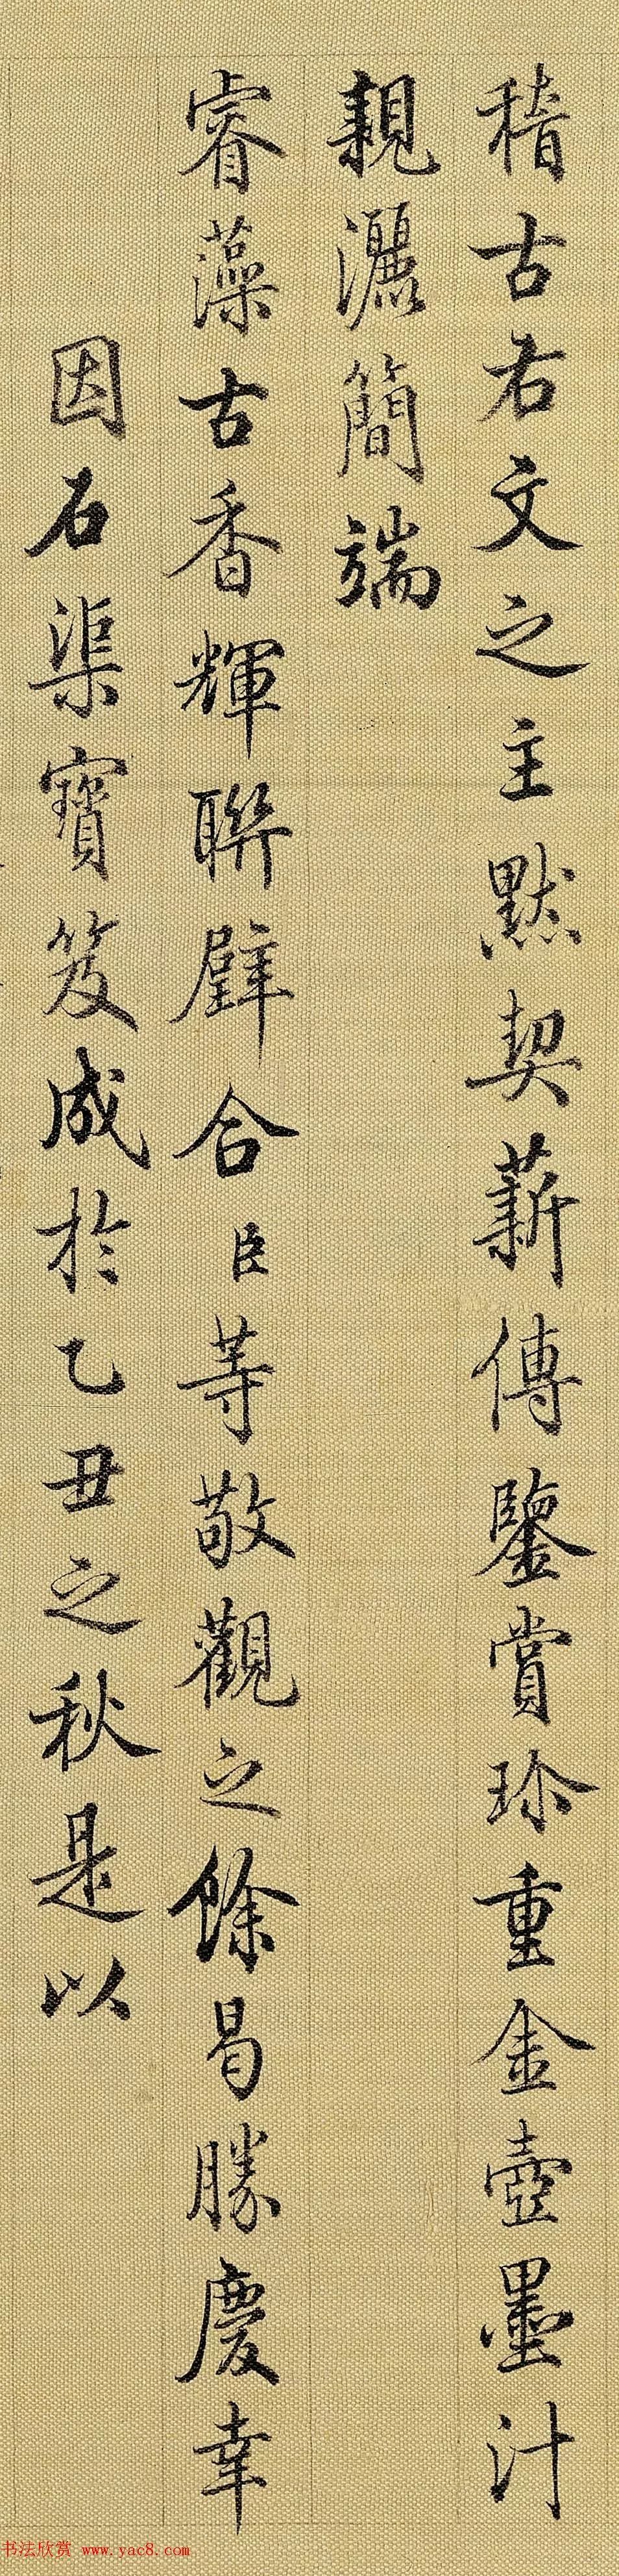 稽古右文之主默契薪傳鑒賞珍重金壺墨汁
親灑簡端
睿藻古香輝聯璧合臣等敬觀之餘曷勝慶幸
因石渠寶笈成於乙丑之秋是以
书法欣赏 www.yac8.com